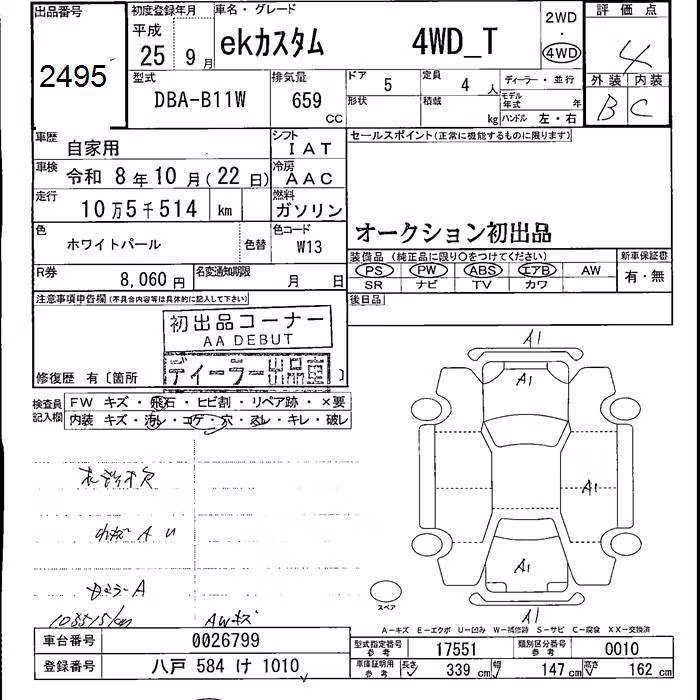 出品番号
2495
初度登録年月
平成
25 9月
車名・グレード
ekカスタム 4WD_T
2WD
・
4WD
評価点
4
外装 内装
B C
型式
DBA-B11W
排気量
659
CC
ドア 5
定員 4 人
ディーラー・並行
形状
積載 kg
モデル年式 年
ハンドル 左・右
車歴 自家用
シフト IAT
セールスポイント(正常に機能するものに限ります)
車検 令和 8年10月(22日)
冷房 AAC
走行 10万5千514 km
燃料 ガソリン
オークション初出品
色 ホワイトパール
色替
色コード W13
装備品 (純正品に限り○をつけてください)
新車保証書
PS PW ABS エアB AW
有・無
SR ナビ TV カワ
R券 8,060円
名変通知期限 月 日
後日品
注意事項申告欄(不具合内容等は具体的に記入して下さい)
初出品コーナー
AA DEBUT
ディーラー出品店
修復歴 有〔箇所 〕
検査員記入欄
FW キズ・飛石・ヒビ割・リペア跡・×要
内装 キズ・汚レ・コゲ・穴・スレ・キレ・破レ
A1
A1
A1
A1
A1
A U
A
105515km
AWキズ
スペア
A-キズ E-エクボ U-凹み W-補修跡 S-サビ C-腐食 XX-交換済
車台番号 0026799
型式指定番号 参考 17551
類別区分番号 参考 0010
登録番号 八戸 584 け 1010
車庫証明用 参考 長さ 339 cm 幅 147 cm 高さ 162 cm